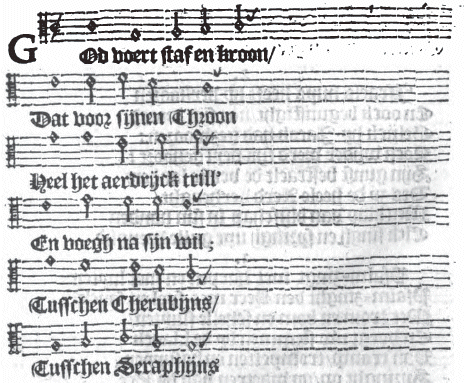 GOd voert staf en kroon/
Dat voor sijnen Throon
Heel het aerdrijck trill'
En voegh na sijn wil;
Tusschen Cherubijns/
Tusschen Seraphijns